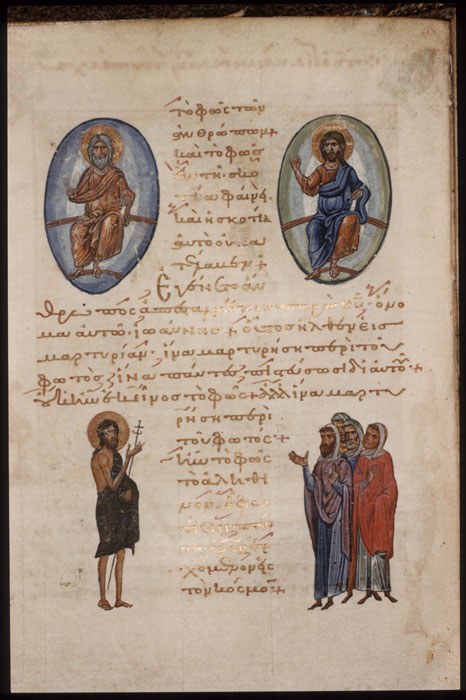 τὸ φῶς τῶν
ἀνθρώπων·
καὶ τὸ φῶς
ἐν τῇ σκο
τίᾳ φαίνει·
καὶ ἡ σκοτία
αὐτὸ οὐ κα
τέλαβεν +
Ἐγένετο ἄν
θρωπος ἀπεσταλμένος παρὰ θῦ· ὄνο
μα αὐτῷ ἰωάννης + οὗτος ἦλθεν εἰς
μαρτυρίαν· ἵνα μαρτυρήσῃ περὶ τοῦ
φωτός· ἵνα πάντες πιστεύσωσι δι' αὐτοῦ +
οὐκ ἦν ἐκεῖνος τὸ φῶς + ἀλλ' ἵνα μαρτυ
ρήσῃ περὶ
τοῦ φωτός +
ἦν τὸ φῶς
τὸ ἀληθι
νόν· ὃ φω
τίζει πάντα
χόμενον εἰς
τὸν κόσμον +